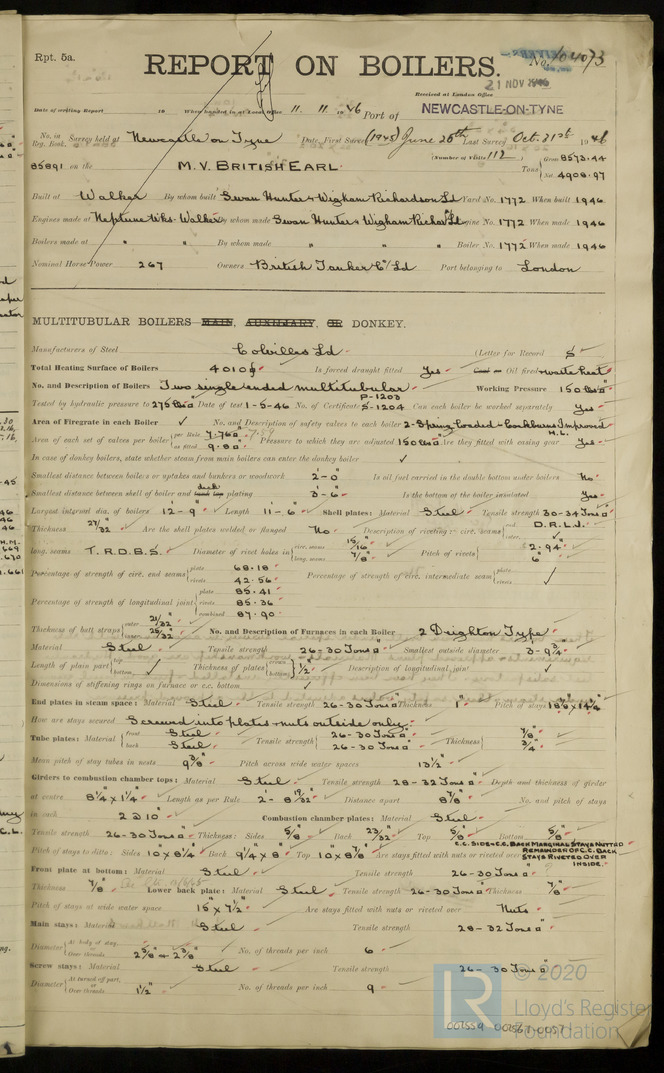 Rpt. 5a.
REPORT ON BOILERS.
No. 104073
21 NOV 1946
Received at London Office
Date of writing Report 19 When handed in at Local Office 11. 11. 1946 Port of NEWCASTLE-ON-TYNE
No. in Reg. Book. Survey held at Newcastle on Tyne Date, First Survey (1945) June 25th Last Survey Oct. 31st 1946
85891 on the M.V. BRITISH EARL. (Number of Visits 112) Tons Gross 8573.44 Net 4908.97
Built at Walker By whom built Swan Hunter & Wigham Richardson Ld Yard No. 1772 When built 1946
Engines made at Neptune Wks. Walker By whom made Swan Hunter & Wigham Richardson Ld Engine No. 1772 When made 1946
Boilers made at " " By whom made " " " Boiler No. 1772 When made 1946
Nominal Horse Power 267 Owners British Tanker Co Ld Port belonging to London
MULTITUBULAR BOILERS MAIN, AUXILIARY, OR DONKEY.
Manufacturers of Steel Colvilles Ld (Letter for Record S)
Total Heating Surface of Boilers 4010 Is forced draught fitted Yes Coal or Oil fired waste heat
No. and Description of Boilers Two single ended multitubular Working Pressure 150 lbs
Tested by hydraulic pressure to 275 lbs Date of test 1-5-46 No. of Certificate P-1203 S-1204 Can each boiler be worked separately Yes
Area of Firegrate in each Boiler ✓ No. and Description of safety valves to each boiler 2-Spring Loaded - Cockburns Improved H.L.
Area of each set of valves per boiler per Rule 7.76 as fitted 9.80 Pressure to which they are adjusted 150 lbs Are they fitted with easing gear Yes
In case of donkey boilers, state whether steam from main boilers can enter the donkey boiler ✓
Smallest distance between boilers or uptakes and bunkers or woodwork 2'-0" Is oil fuel carried in the double bottom under boilers No
Smallest distance between shell of boiler and deck plating 3'-6" Is the bottom of the boiler insulated Yes
Largest internal dia. of boilers 12'-9" Length 11'-6" Shell plates: Material Steel Tensile strength 30-34 Tons
Thickness 27/32" Are the shell plates welded or flanged No Description of riveting: circ. seams end D.R.L.J. inter. ✓
long. seams T.R.D.B.S. Diameter of rivet holes in circ. seams 15/16" long. seams 7/8" Pitch of rivets 2.94" 6"
Percentage of strength of circ. end seams plate 68.18 rivets 42.56 Percentage of strength of circ. intermediate seam plate rivets ✓
Percentage of strength of longitudinal joint plate 85.41 rivets 85.36 combined 87.90
Thickness of butt straps outer 21/32" inner 25/32" No. and Description of Furnaces in each Boiler 2 Deighton Type
Material Steel Tensile strength 26-30 Tons Smallest outside diameter 3'-9 3/4"
Length of plain part top bottom ✓ Thickness of plates crown bottom 1/2" Description of longitudinal joint ✓
Dimensions of stiffening rings on furnace or c.c. bottom ✓
End plates in steam space: Material Steel Tensile strength 26-30 Tons Thickness 1" Pitch of stays
How are stays secured Screwed into plates & nuts outside only.
Tube plates: Material front Steel back Steel Tensile strength 26-30 Tons 26-30 Tons Thickness 7/8" 3/4"
Mean pitch of stay tubes in nests 9 3/8" Pitch across wide water spaces 13 1/2"
Girders to combustion chamber tops: Material Steel Tensile strength 28-32 Tons Depth and thickness of girder
at centre 8 1/4 x 1 1/4" Length as per Rule 2'-8 19/32" Distance apart 8 7/8" No. and pitch of stays
in each 2 @ 10" Combustion chamber plates: Material Steel
Tensile strength 26-30 Tons Thickness: Sides 5/8" Back 23/32" Top 5/8" Bottom 5/8"
Pitch of stays to ditto: Sides 10 x 8 1/4" Back 9 1/4 x 8" Top 10 x 8 7/8" Are stays fitted with nuts or riveted over C.C. SIDE & C.C. BACK MARGINAL STAYS NUTTED REMAINDER OF C.C. BACK STAYS RIVETED OVER INSIDE.
Front plate at bottom: Material Steel Tensile strength 26-30 Tons
Thickness 7/8" Lower back plate: Material Steel Tensile strength 26-30 Tons Thickness 7/8"
Pitch of stays at wide water space 15 x 7 1/2" Are stays fitted with nuts or riveted over Nuts
Main stays: Material Steel Tensile strength 28-32 Tons
Diameter At body of stay, or Over threads 2 5/8" & 2 3/8" No. of threads per inch 6
Screw stays: Material Steel Tensile strength 26-30 Tons
Diameter At turned off part, or Over threads 1 1/2" No. of threads per inch 9
© 2020
LR Lloyd's Register
Foundation